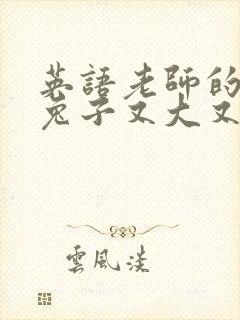 英語老師的
兔子又大又
雲風淡